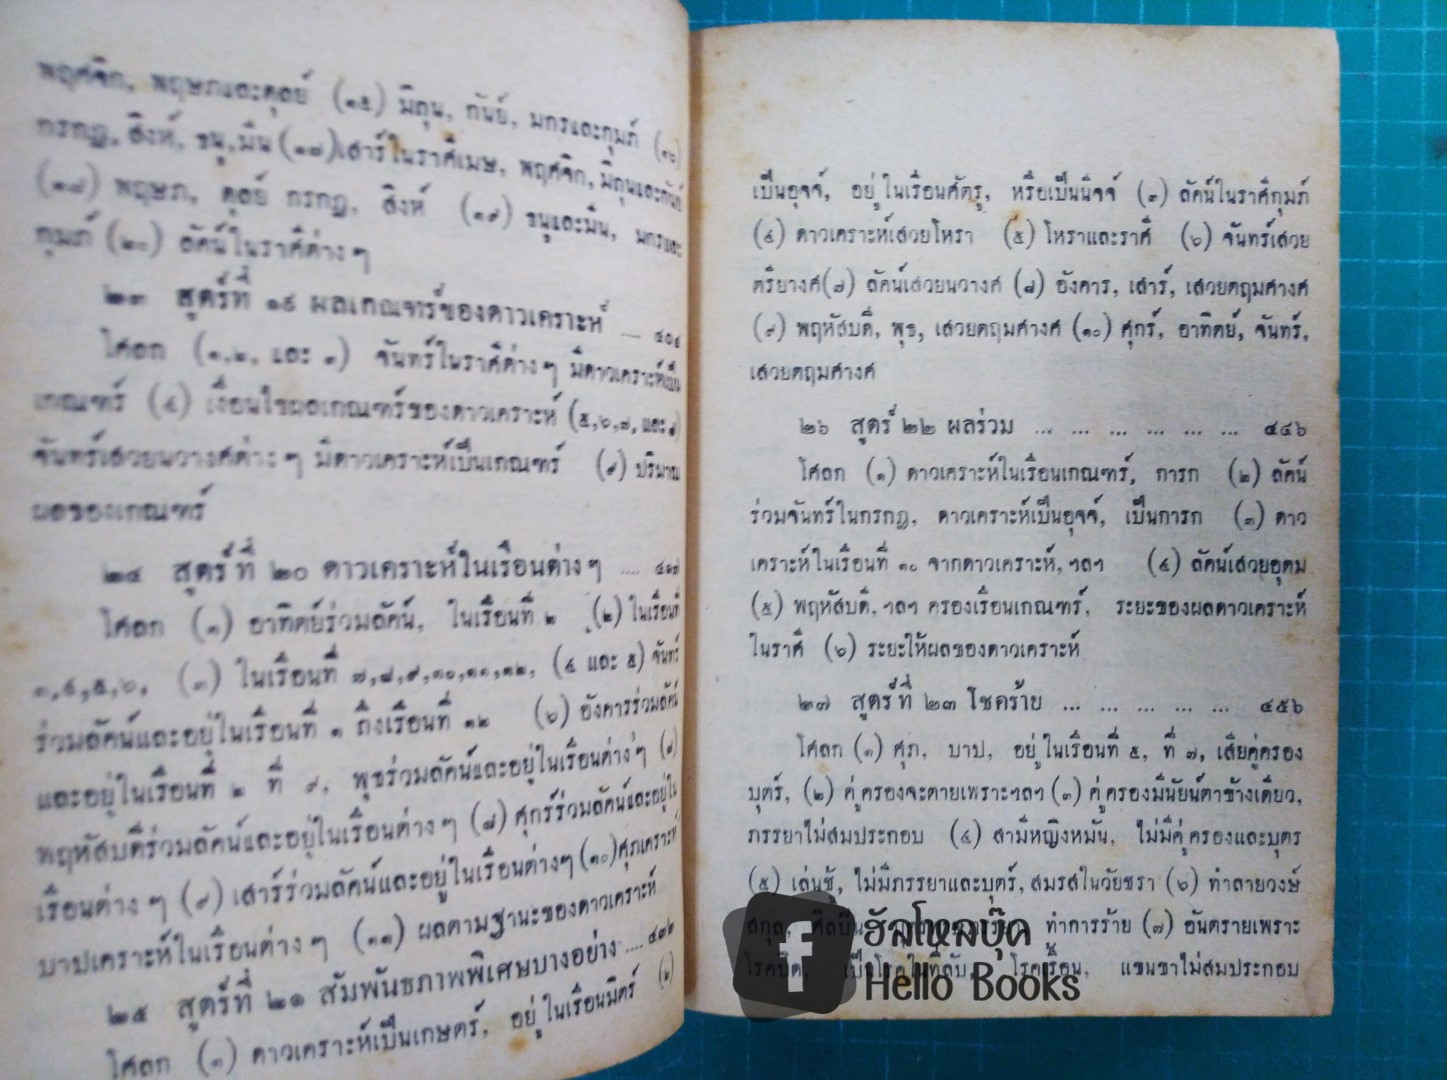 พฤศจิก, พฤษภและตุลย์ (๑๕) มิถุน, กันย์, มกรและกุมภ์ (๑๖)
กรกฎ, สิงห์, ธนู,มีน (๑๗)เสาร์ในราศีเมษ, พฤศจิก, มิถุนและกันย์
(๑๘) พฤษภ, ตุลย์ กรกฎ, สิงห์ (๑๙) ธนูและมีน, มกรและ
กุมภ์ (๒๐) ลัคน์ในราศีต่าง ๆ
๒๓ สูตร์ที่ ๑๙ ผลเกณฑร์ของดาวเคราะห์ .... ๔๐๔
โศลก (๑,๒, และ ๓) จันทร์ในราศีต่าง ๆ มีดาวเคราะห์เป็น
เกณฑร์ (๔) เงื่อนไขผลเกณฑร์ของดาวเคราะห์ (๕,๖,๗, และ ๘)
จันทร์เสวยนวางศต่าง ๆ มีดาวเคราะห์เป็นเกณฑร์ (๙) ปริมาณ
ผลของเกณฑร์
๒๔ สูตร์ที่ ๒๐ ดาวเคราะห์ในเรือนต่าง ๆ .... ๔๑๗
โศลก (๑) อาทิตย์ร่วมลัคน์, ในเรือนที่ ๒ (๒) ในเรือนที่
๓,๔,๕,๖, (๓) ในเรือนที่ ๗,๘,๙,๑๐,๑๑,๑๒, (๔ และ ๕) จันทร์
ร่วมลัคน์และอยู่ในเรือนที่ ๑ ถึงเรือนที่ ๑๒ (๖) อังคารร่วมลัคน์
และอยู่ในเรือนที่ ๒ ที่ ๙, พุธร่วมลัคน์และอยู่ในเรือนต่าง ๆ (๗)
พฤหัสบดีร่วมลัคน์และอยู่ในเรือนต่าง ๆ (๘) ศุกร์ร่วมลัคน์และอยู่ใน
เรือนต่าง ๆ (๙) เสาร์ร่วมลัคน์และอยู่ในเรือนต่างๆ (๑๐)ศุภเคราะห์
บาปเคราะห์ในเรือนต่าง ๆ (๑๑) ผลตามฐานะของดาวเคราะห์
๒๕ สูตร์ที่ ๒๑ สัมพันธภาพพิเศษบางอย่าง .... ๔๓๒
โศลก (๑) ดาวเคราะห์เป็นเกษตร์, อยู่ในเรือนมิตร์ (๒)
เป็นอุจจ์, อยู่ในเรือนศัตรู, หรือเป็นนิจจ์ (๓) ลัคน์ในราศีกุมภ์
(๔) ดาวเคราะห์เสวยโหรา (๕) โหราและราศี (๖) จันทร์เสวย
ตรียางศ(๗) ลัคน์เสวยนวางศ (๘) อังคาร, เสาร์, เสวยตฤมศางศ
(๙) พฤหัสบดี, พุธ, เสวยตฤมศางศ (๑๐) ศุกร์, อาทิตย์, จันทร์,
เสวยตฤมศางศ
๒๖ สูตร์ ๒๒ ผลร่วม ... ... ... ... ... ... ๔๔๖
โศลก (๑) ดาวเคราะห์ในเรือนเกณฑร์, การก (๒) ลัคน์
ร่วมจันทร์ในกรกฎ, ดาวเคราะห์เป็นอุจจ์, เป็นการก (๓) ดาว
เคราะห์ในเรือนที่ ๑๐ จากดาวเคราะห์, ฯลฯ (๔) ลัคน์เสวยอุดม
(๕) พฤหัสบดี, ฯลฯ ครองเรือนเกณฑร์, ระยะของผลดาวเคราะห์
ในราศี (๖) ระยะให้ผลของดาวเคราะห์
๒๗ สูตร์ที่ ๒๓ โชคร้าย ... ... ... ... ... ๔๕๖
โศลก (๑) ศุภ, บาป, อยู่ในเรือนที่ ๕, ที่ ๗, เสียคู่ครอง
บุตร์, (๒) คู่ครองจะตายเพราะฯลฯ (๓) คู่ครองมีนัยน์ตาข้างเดียว,
ภรรยาไม่สมประกอบ (๔) สามีหญิงหมัน, ไม่มีคู่ครองและบุตร
(๕) เล่นชู้, ไม่มีภรรยาและบุตร์, สมรสในวัยชรา (๖) ทำลายวงษ์
สกุล, ศิลปิน ทำการร้าย (๗) อันตรายเพราะ
โรคปิด, เป็นโรคในที่ลับ, โรคเรื้อน, แขนขาไม่สมประกอบ
ฮัลโหลบุ๊ค
Hello Books